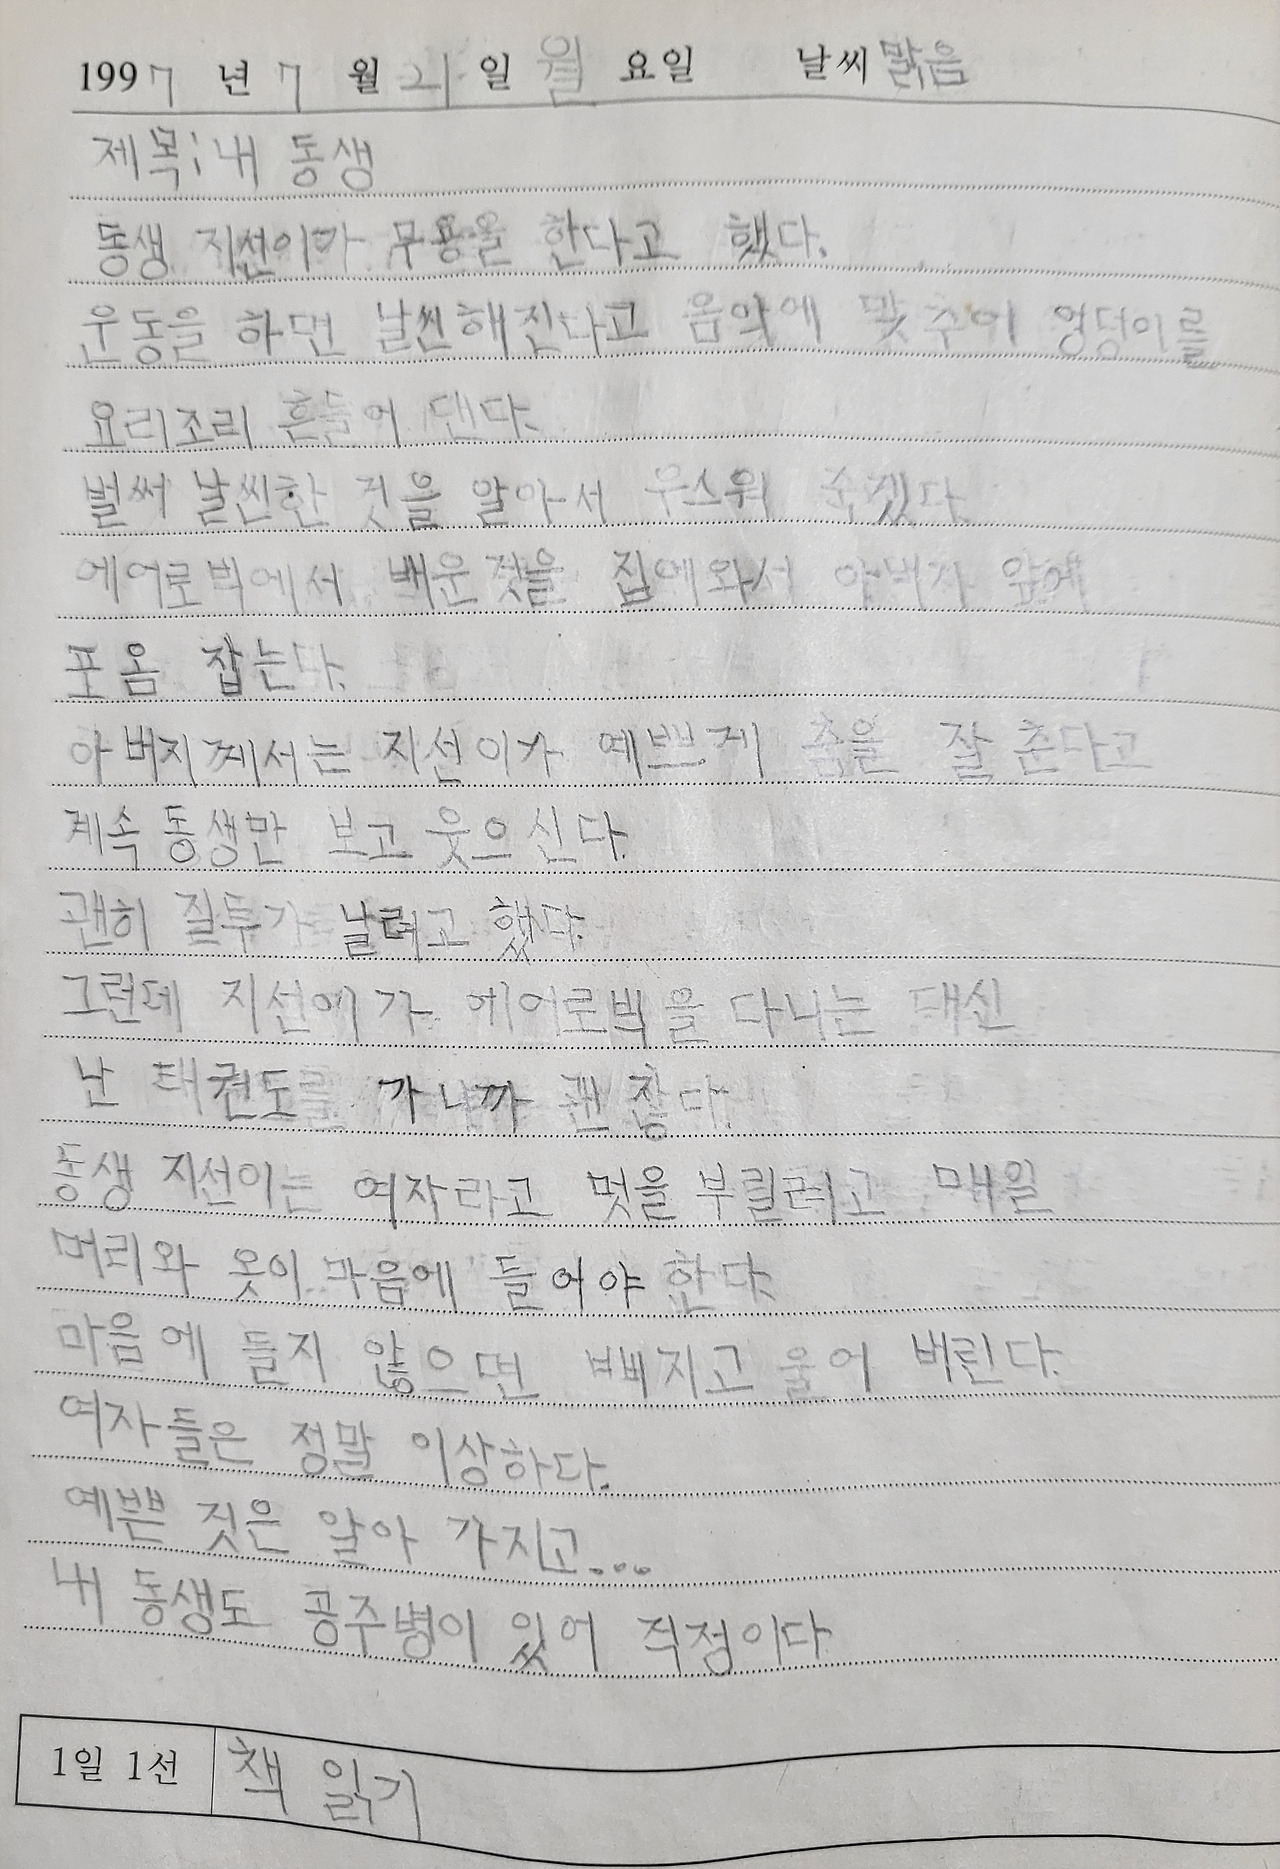 1997 년 7 월 21 일 월 요일 날씨 맑음
제목: 내 동생
동생 지선이가 무용을 한다고 했다.
운동을 하면 날씬해진다고 음악에 맞추어 엉덩이를
요리조리 흔들어 댄다.
벌써 날씬한 것을 알아서 우스워 죽겠다.
에어로빅에서 배운것을 집에와서 아버지 앞에
포옴 잡는다.
아버지께서는 지선이가 예쁘게 춤을 잘 춘다고
계속 동생만 보고 웃으신다.
괜히 질투가 날려고 했다.
그런데 지선에가 에어로빅을 다니는 대신
난 태권도를 가니까 괜찮다.
동생 지선이는 여자라고 멋을 부릴려고 매일
머리와 옷이 마음에 들어야 한다.
마음에 들지 않으면 삐지고 울어 버린다.
여자들은 정말 이상하다.
예쁜 것은 알아 가지고...
내 동생도 공주병이 있어 걱정이다
1일 1선 책 읽기